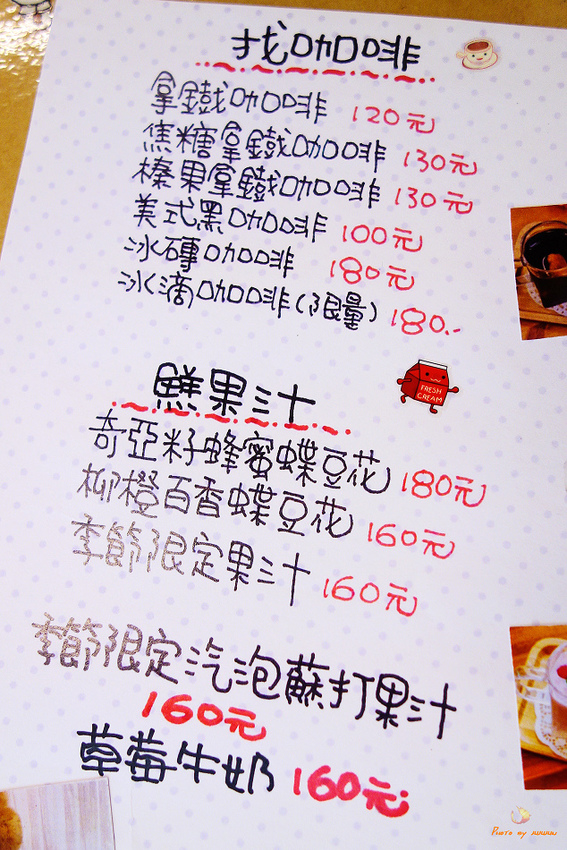 找咖啡
拿鐵咖啡 120元
焦糖拿鐵咖啡 130元
榛果拿鐵咖啡 130元
美式黑咖啡 100元
冰磚咖啡 180元
冰滴咖啡(限量) 180.-
鮮果汁
FRESH
CREAM
奇亞籽蜂蜜蝶豆花 180元
柳橙百香蝶豆花 160元
季節限定果汁 160元
季節限定汽泡蘇打果汁
160元
草莓牛奶 160元